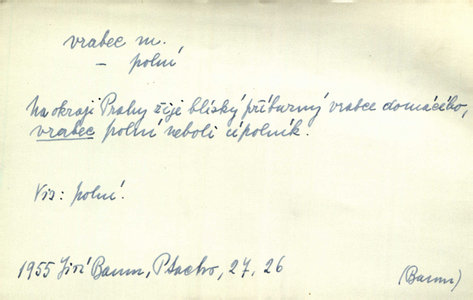 vrabec m.
– polní
Na okraji Prahy žije blízký příbuzný vrabce domácího,
vrabec polní neboli cípolník.
Viz: polní.
1955 Jiří Baum, Ptactvo, 27, 26
(Baum)